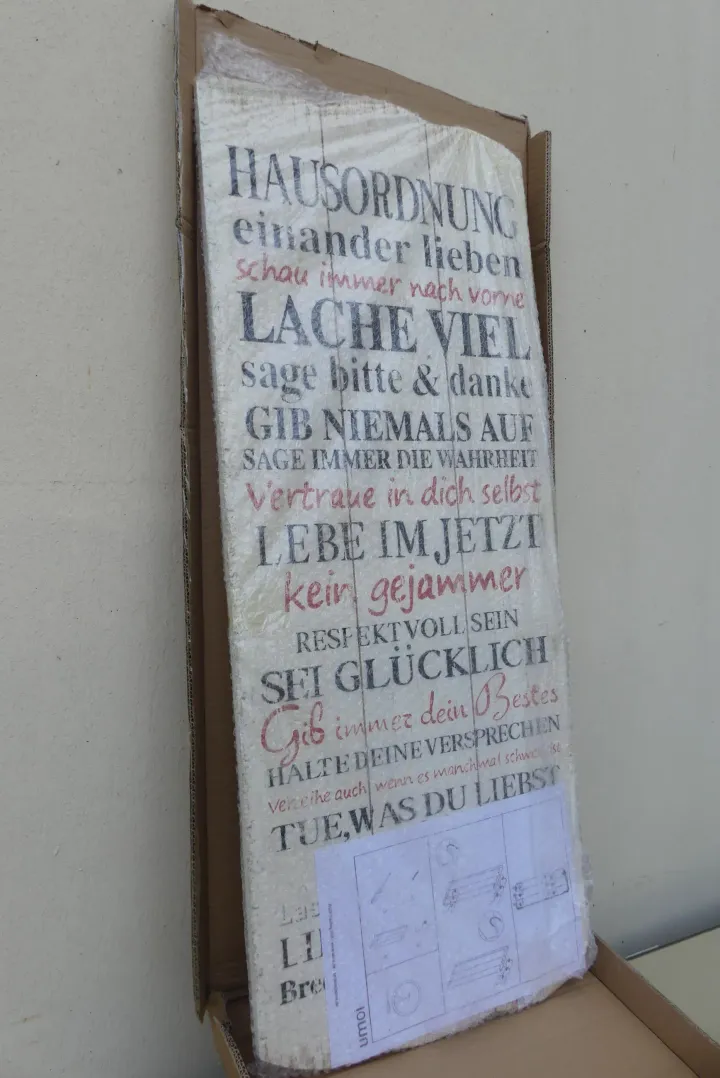 HAUSORDNUNG
einander lieben
schau immer nach vorne
LACHE VIEL
sage bitte & danke
GIB NIEMALS AUF
SAGE IMMER DIE WAHRHEIT
Vertraue in dich selbst
LEBE IM JETZT
kein gejammer
RESPEKTVOLL SEIN
SEI GLÜCKLICH
Gib immer dein Bestes
HALTE DEINE VERSPRECHEN
verzeihe auch wenn es manchmal
TUE, WAS DU LIEBST